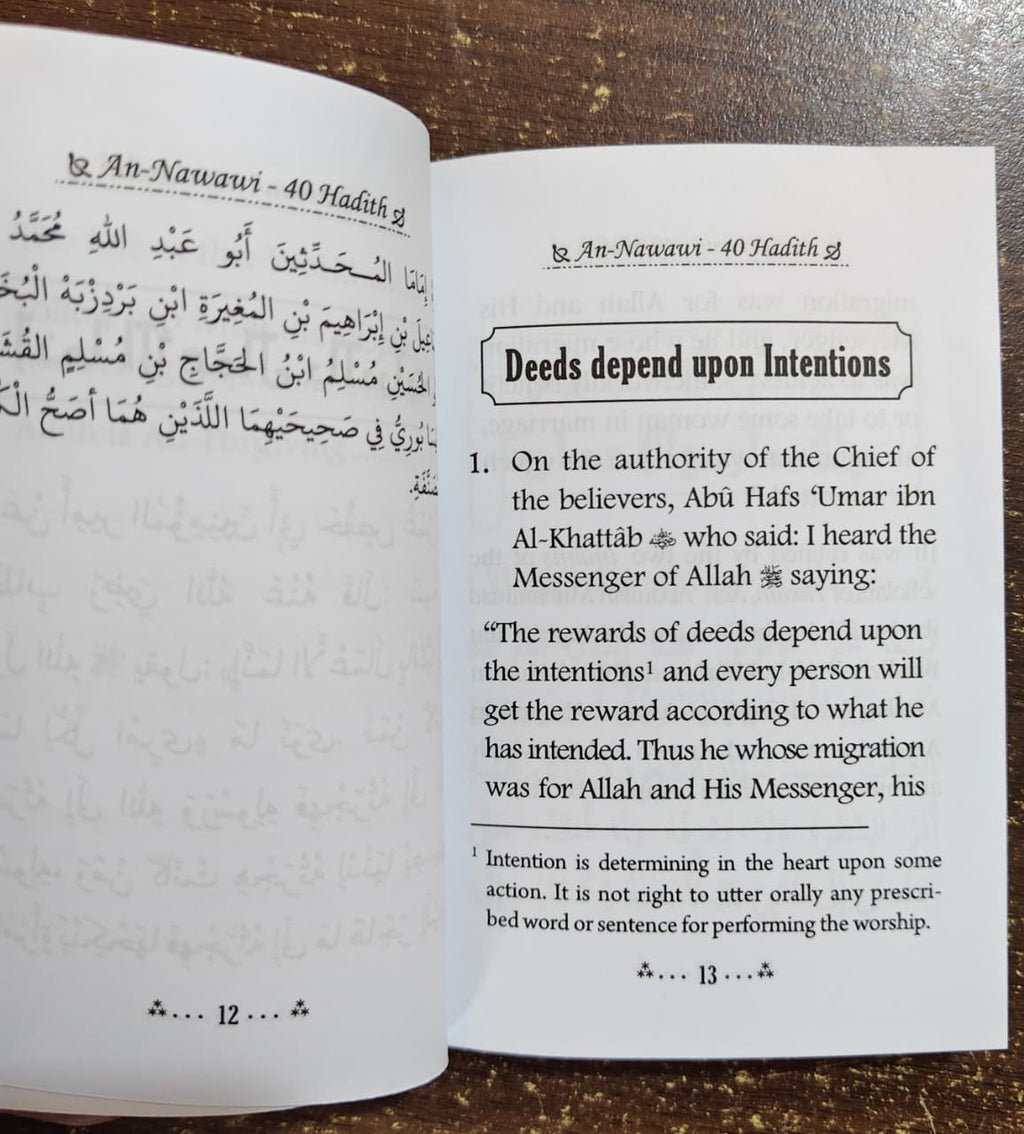 An-Nawawi - 40 Hadith
إِمَامَا المُـحَـدِّثِينَ أَبُو عَبْدِ اللهِ مُحَمَّدُ
بْنِ إِبْرَاهِيمَ بْنِ المُغِيرَةِ ابْنِ بَرْدِزْبَهْ
الحُسَيْنِ مُسْلِمُ ابْنُ الحَجَّاجِ بْنِ مُسْلِمٍ
فِي صَحِيحَيْهِمَا اللَّذَيْنِ هُمَا أَصَحُّ
12
An-Nawawi - 40 Hadith
Deeds depend upon Intentions
1. On the authority of the Chief of
the believers, Abû Hafs ‘Umar ibn
Al-Khattâb who said: I heard the
Messenger of Allah ﷺ saying:
“The rewards of deeds depend upon
the intentions¹ and every person will
get the reward according to what he
has intended. Thus he whose migration
was for Allah and His Messenger, his
¹ Intention is determining in the heart upon some
action. It is not right to utter orally any prescri-
bed word or sentence for performing the worship.
13